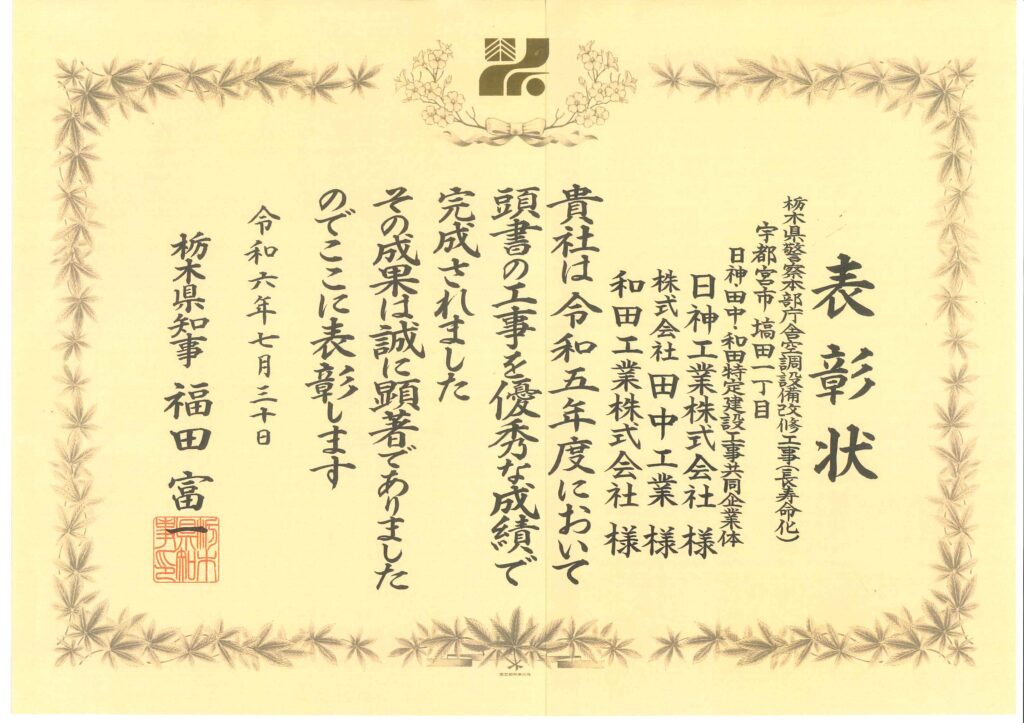 表彰状
栃木県警察本部庁舎空調設備改修工事(長寿命化)
宇都宮市 塙田一丁目
日神・田中・和田特定建設工事共同企業体
日神工業株式会社 様
株式会社 田中工業 様
和田工業株式会社 様
貴社は令和五年度において
頭書の工事を優秀な成績で
完成されました
その成果は誠に顕著でありました
のでここに表彰します
令和六年七月三十日
栃木県知事 福田 富一
栃木県知事之印